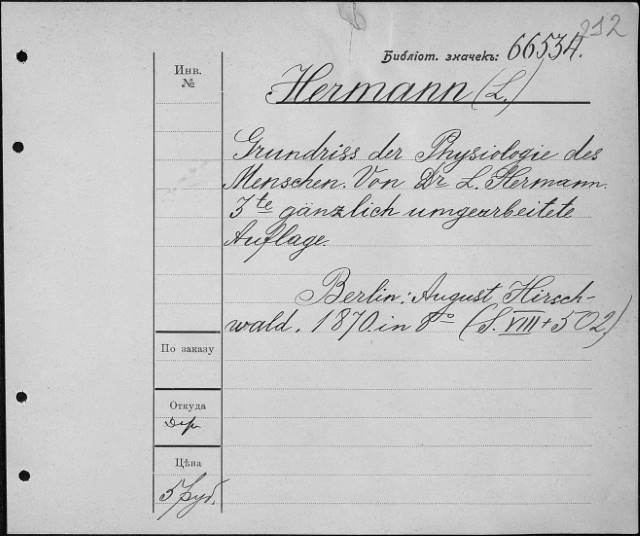 212
Библіот. значекъ: 66534.
Инв.
№
Hermann (L.)
Grundriss der Physiologie des
Menschen. Von Dr L. Hermann.
3te gänzlich umgearbeitete
Auflage.
Berlin: August Hirsch-
wald. 1870. in 8o (S. VIII + 502)
По заказу
Откуда
Цѣна
5 руб.